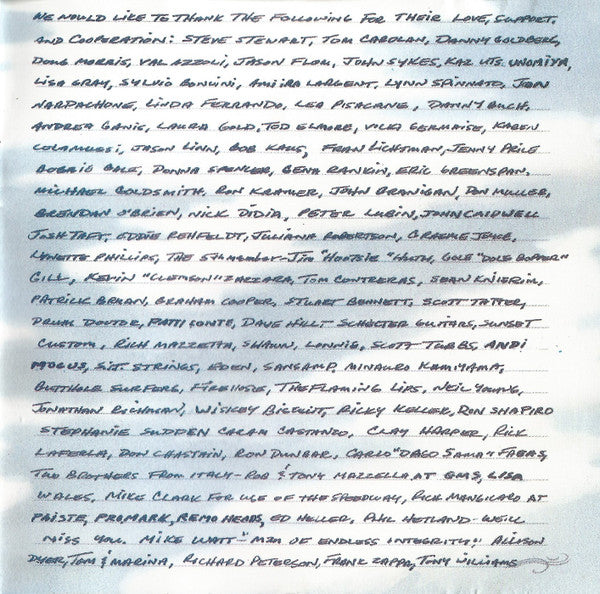 WE WOULD LIKE TO THANK THE FOLLOWING FOR THEIR LOVE, SUPPORT,
AND COOPERATION: STEVE STEWART, TOM CAROLAN, DANNY GOLDBERG,
DOUG MORRIS, VAL AZZOLI, JASON FLOM, JOHN SYKES, KAZ UTSUNOMIYA,
LISA GRAY, SYLVIO BONLINI, AMIIRA LARGENT, LYNN SPINNATO, JEAN
NARDACHONE, LINDA FERRANDO, LEA PISACANE, DANNY BUCH,
ANDREA GANIS, LAURA GOLD, TOD ELMORE, VICKI GERMAISE, KAREN
COLAMUSSI, JASON LINN, BOB KAUS, FRAN LICHTMAN, JENNY PRICE
BOBBIE GALE, DONNA SPENCER, GENA RANKIN, ERIC GREENSPAN,
MICHAEL GOLDSMITH, RON KRAMER, JOHN BRANIGAN, DON MULLER,
BRENDAN O'BRIEN, NICK DIDIA, PETER LUBIN, JOHN CALDWELL
JOSH TAFT, EDDIE REHFELDT, JULIANA ROBERTSON, GRAEME
LYNETTE PHILLIPS, THE 5TH MEMBER - JIM "HOOTSIE" HUTH, GOLE "DOLE BOPPER"
GILL, KEVIN "CLEMSON" ZAZZARA, TOM CONTRERAS, SEAN KNIERIM,
PATRICK BRMAN, GRAHAM COOPER, STUART BENNETT, SCOTT TATTER,
DRUM DOCTOR, PATTI CONTE, DAVE HILL SCHECTER GUITARS, SUNSET
CUSTOM, RICH MAZZETTA, SHAWN, LONNIE, SCOTT TUBBS, ANDI
MOGUS, S.I.T. STRINGS, EDEN, SANSAMP, MINAURO KAMIYAMA,
BUTTHOLE SURFERS, FIREHOSE, THE FLAMING LIPS, NEIL YOUNG,
JONATHAN RICHMAN, WISKEY BISCUIT, RICKY KELLER, RON SHAPIRO
STEPHANIE SUDDEN CARAM CASTANZO, CLAY HARPER, RICK
LAFERLA, DON CHASTAIN, RON DUNBAR, CARLO "DAGO SAMA" FAGAS,
TWO BROTHERS FROM ITALY - ROB & TONY MAZZELLA AT GMS, LISA
WALES, MIKE CLARK FOR USE OF THE SPEEDWAY, RICH MANGICARO AT
PAISTE, PROMARK, REMO HEADS, ED HELLER, PHIL HETLAND - WE'LL
MISS YOU. MIKE WATT - "MAN OF ENDLESS INTEGRITY". ALLISON
DYER, TOM & MARINA, RICHARD PETERSON, FRANK ZAPPA, TONY WILLIAMS